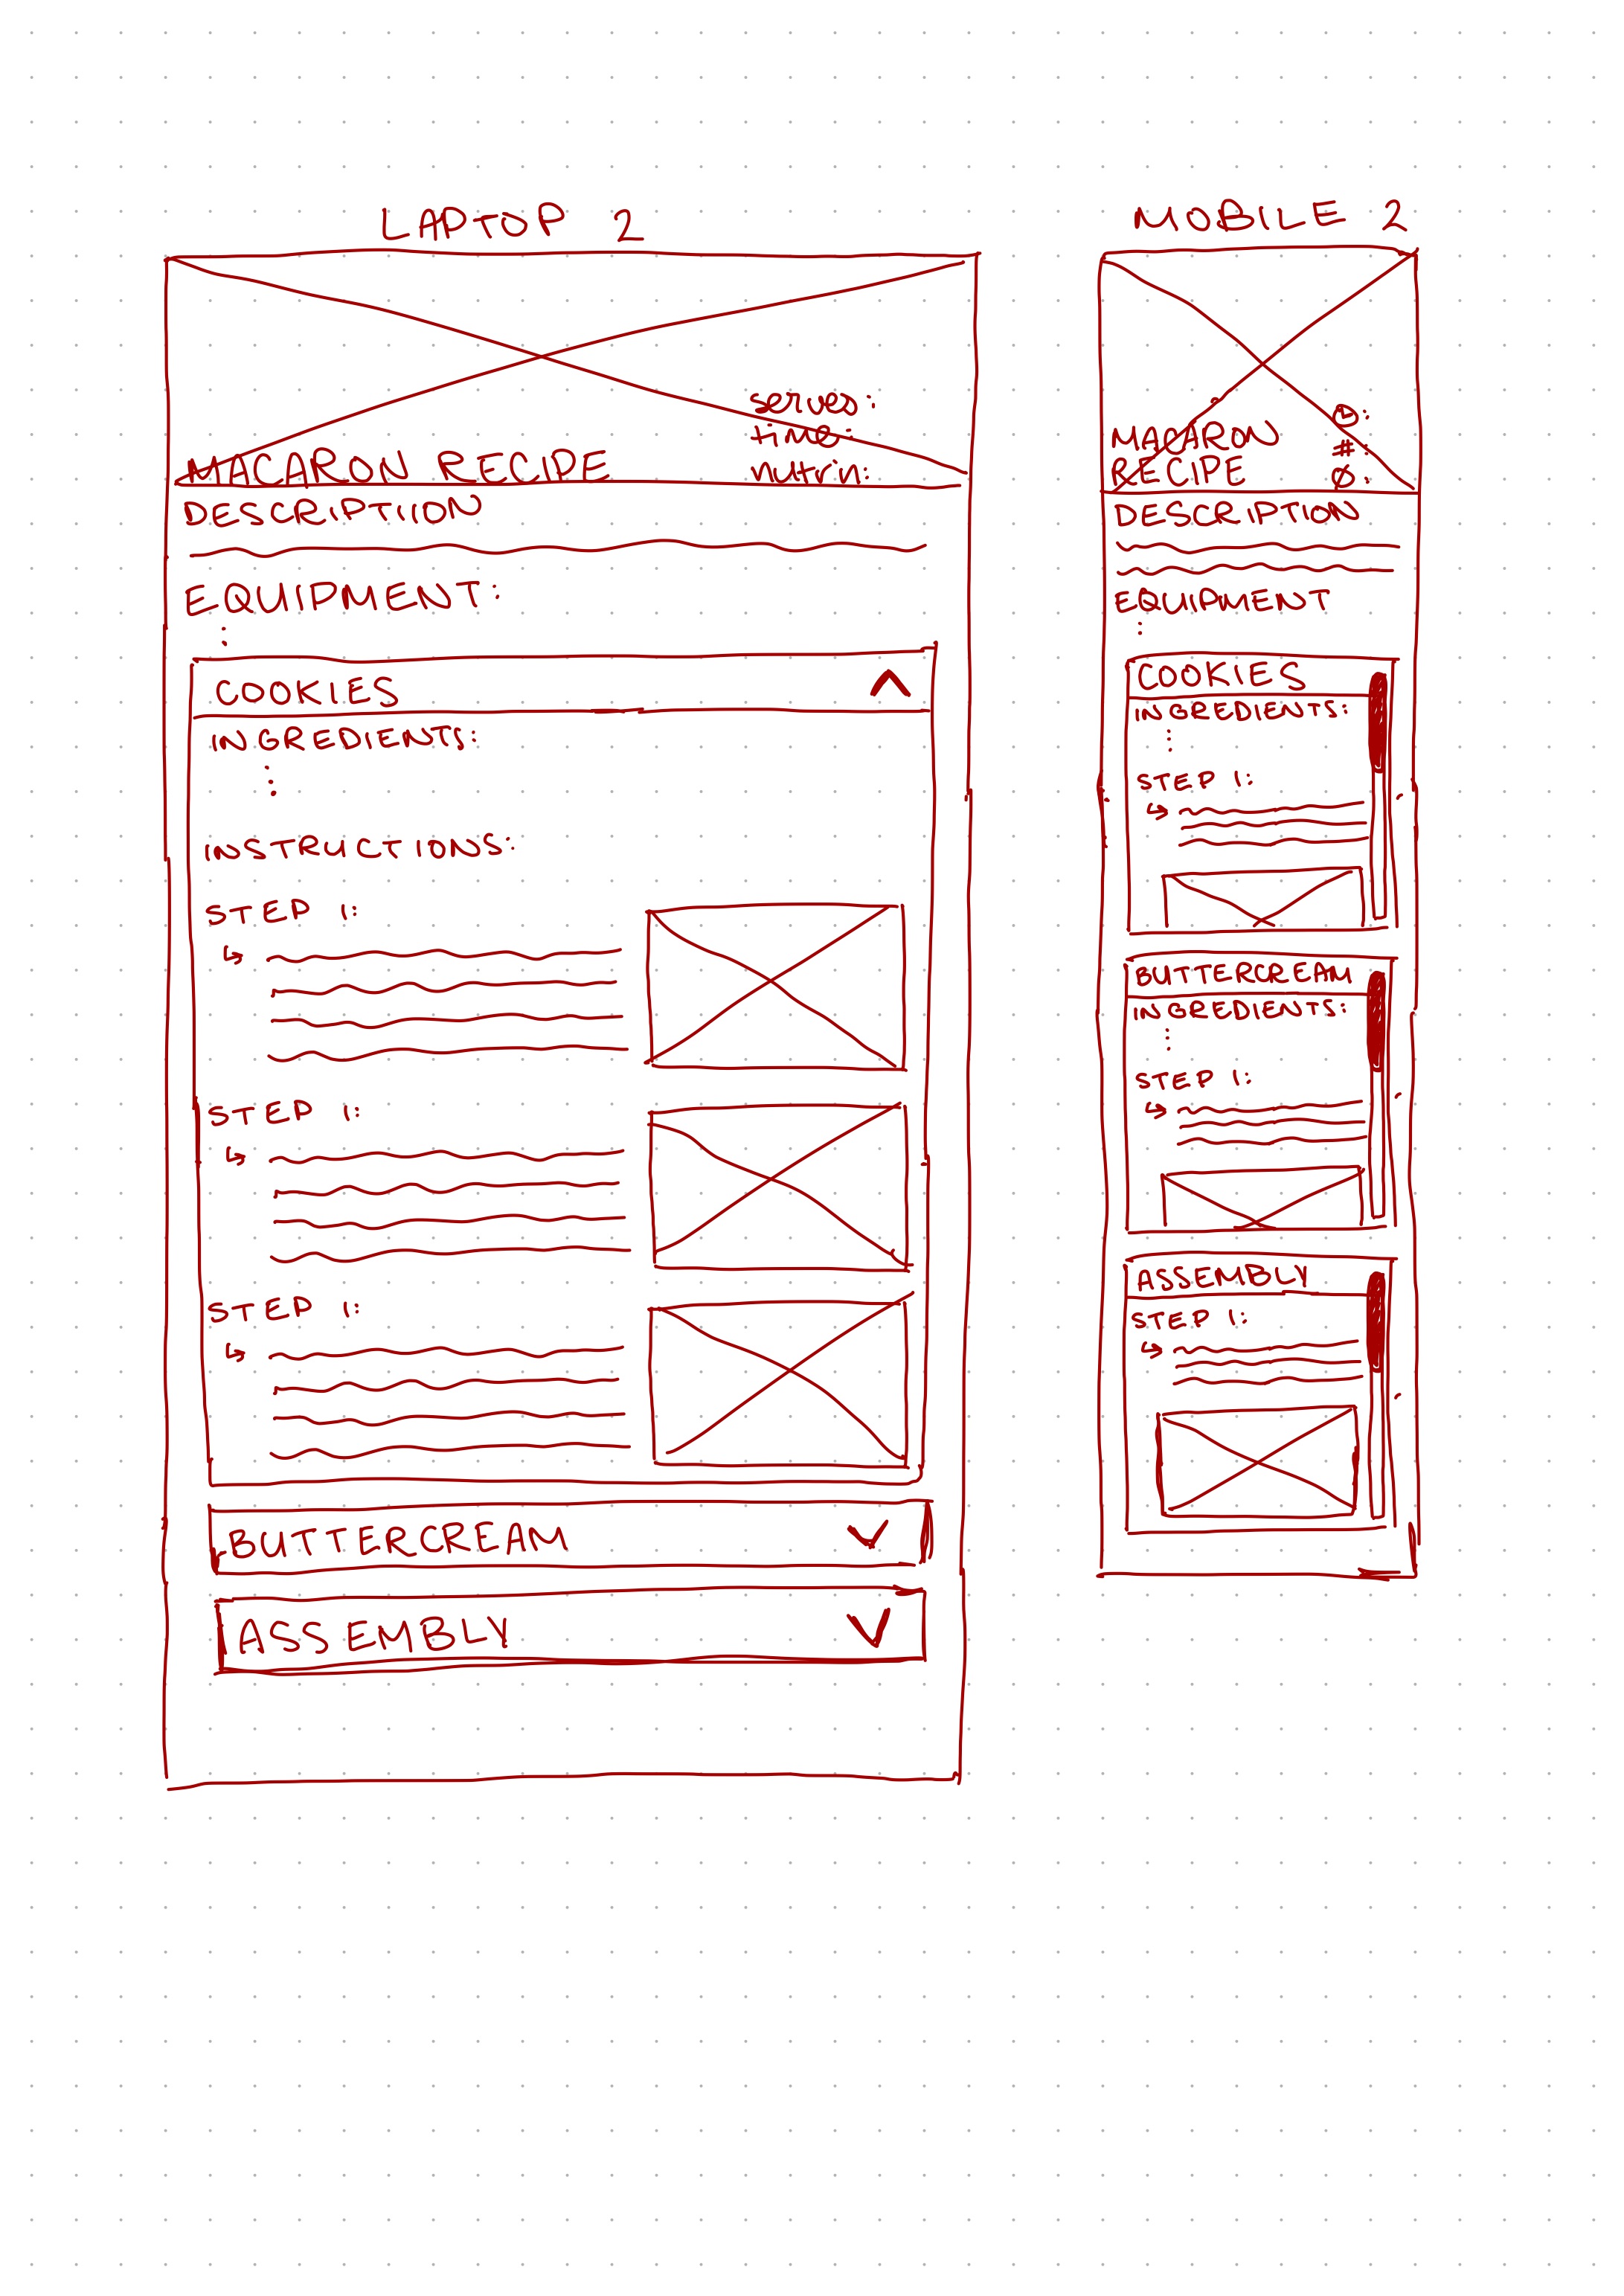 LAPTOP 2
serves:
time:
nutrin:
MACARON RECIPE
DESCRIPTIION
EQUIPMENT:
COOKIES
INGREDIENTS:
INSTRUCTIONS:
STEP 1:
STEP 1:
STEP 1:
BUTTERCREAM
ASSEMBLY
MOBILE 2
MACARON
RECIPE
#:
DESCRIPTION
EQUIPMENT
COOKIES
INGREDIENTS:
STEP 1:
BUTTERCREAM
INGREDIENTS:
STEP 1:
ASSEMBLY
STEP 1: